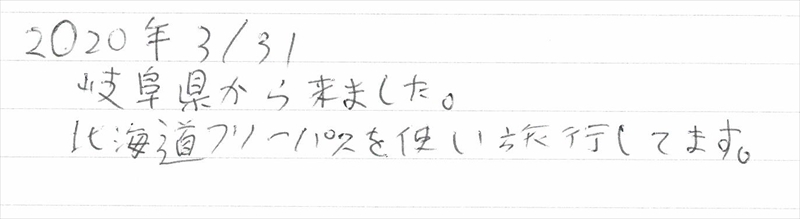 2020年3/31
岐阜県から来ました。
北海道フリーパスを使い旅行してます。